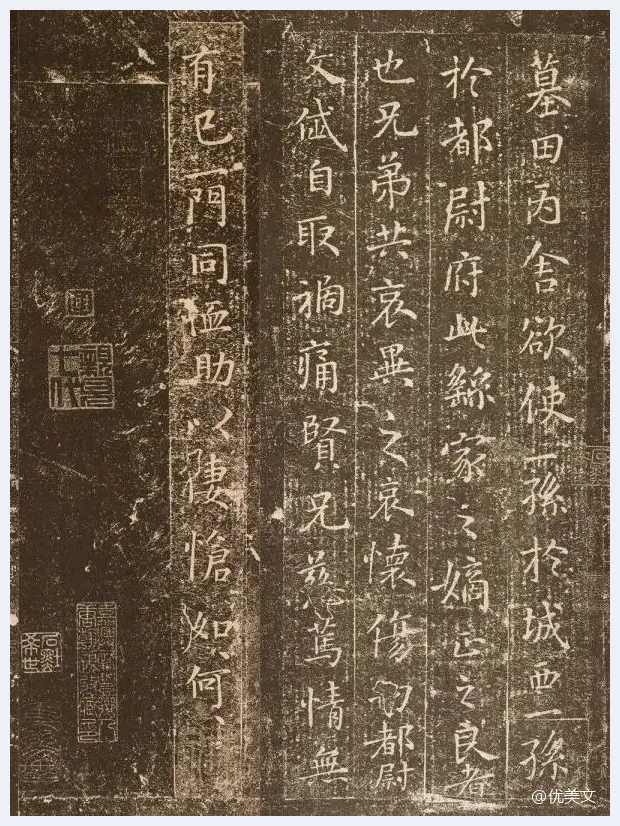 墓田丙舍欲使一孫於城西一孫
於都尉府此繇家之嫡正之良者
也兄弟共哀異之哀懷傷切都尉
文岱自取禍痛賢兄慈篤情無
有已一門同恤助以悽愴如何
@优美文